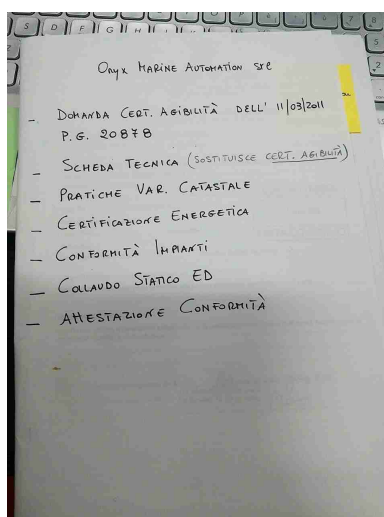 Onyx MARINE AUTOMATION SRL
- DOMANDA CERT. AGIBILITÀ DELL' 11/03/2011
P.G. 20878
- SCHEDA TECNICA (SOSTITUISCE CERT. AGIBILITÀ)
- PRATICHE VAR. CATASTALE
- CERTIFICAZIONE ENERGETICA
- CONFORMITÀ IMPIANTI
- COLLAUDO STATICO ED
- ATTESTAZIONE CONFORMITÀ